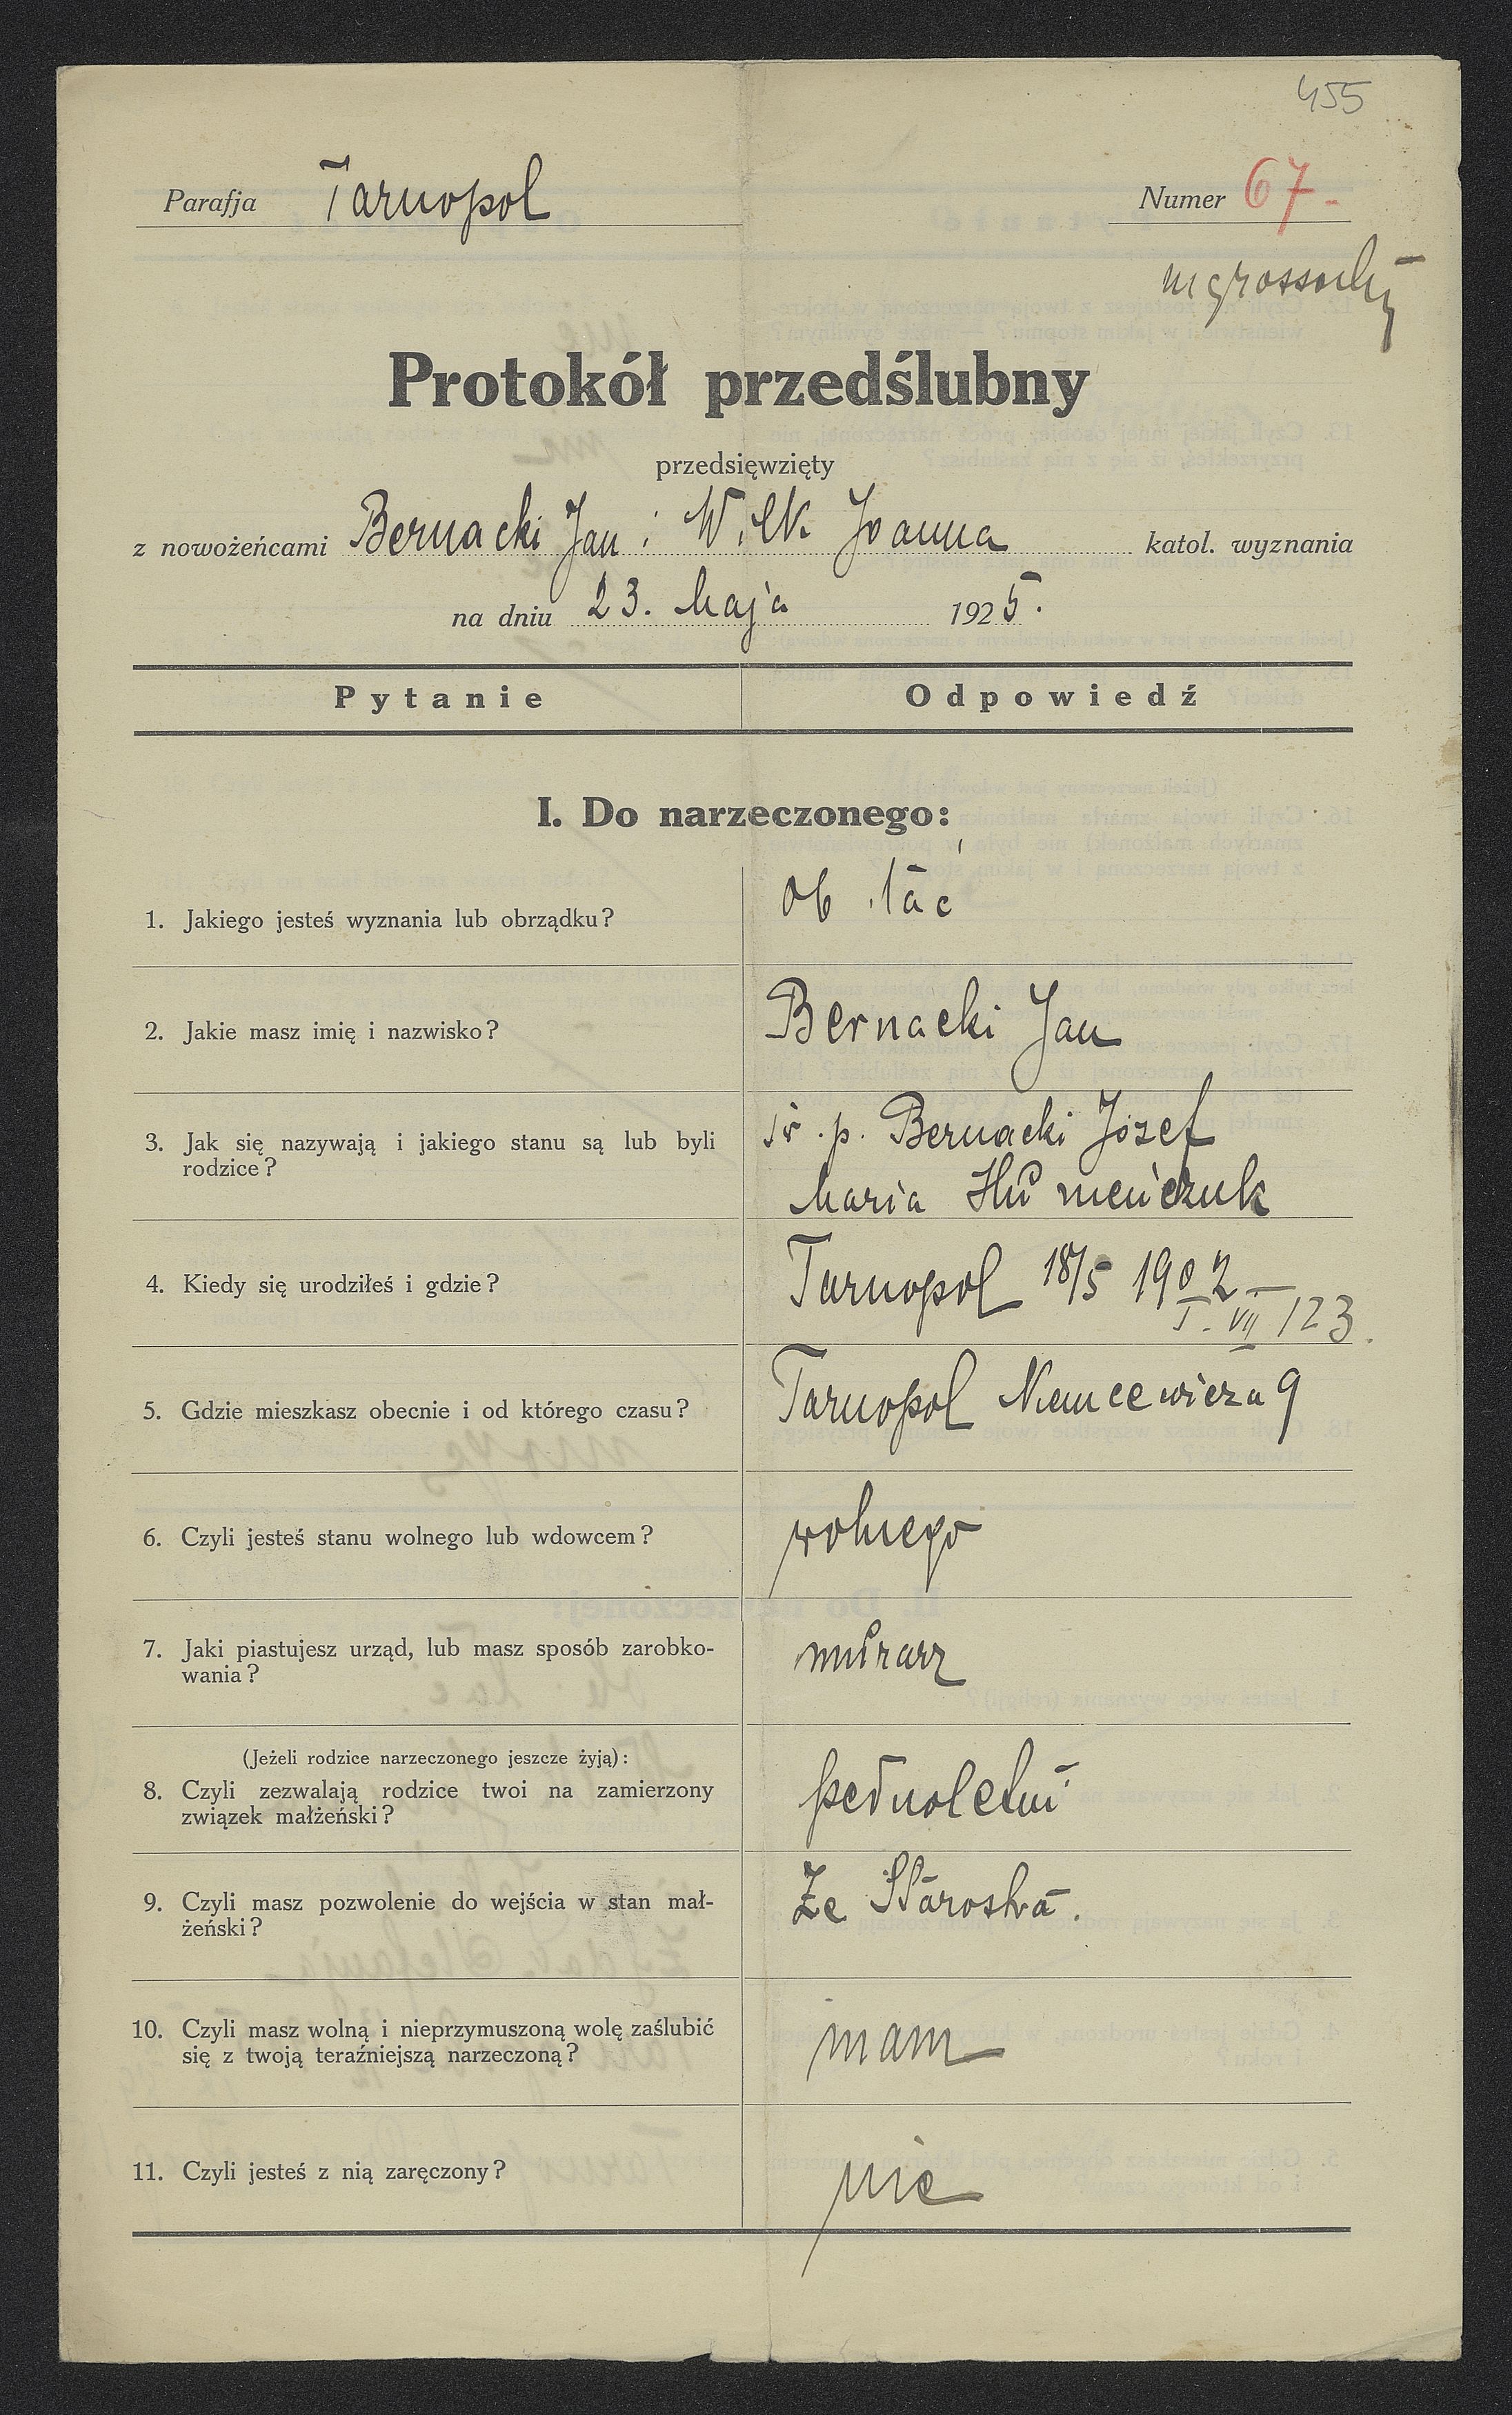 455
Parafja Tarnopol Numer 67.
Protokół przedślubny
przedsięwzięty
z nowożeńcami Bernacki Jan i Wilk Joanna katol. wyznania
na dniu 23. Maja 1925.
Pytanie Odpowiedź
I. Do narzeczonego:
1. Jakiego jesteś wyznania lub obrządku? ob łać
2. Jakie masz imię i nazwisko? Bernacki Jan
3. Jak się nazywają i jakiego stanu są lub byli rodzice? ś. p. Bernacki Józef
Maria Humeńczuk
4. Kiedy się urodziłeś i gdzie? Tarnopol 18/5 1902
T. VII 123.
5. Gdzie mieszkasz obecnie i od którego czasu? Tarnopol Niemcewicza 9
6. Czyli jesteś stanu wolnego lub wdowcem? wolnego
7. Jaki piastujesz urząd, lub masz sposób zarobko-
wania? murarz
(Jeżeli rodzice narzeczonego jeszcze żyją):
8. Czyli zezwalają rodzice twoi na zamierzony
związek małżeński? pełnoletni
9. Czyli masz pozwolenie do wejścia w stan mał-
żeński? Ze Starostwa.
10. Czyli masz wolną i nieprzymuszoną wolę zaślubić
się z twoją teraźniejszą narzeczoną? mam
11. Czyli jesteś z nią zaręczony? nie